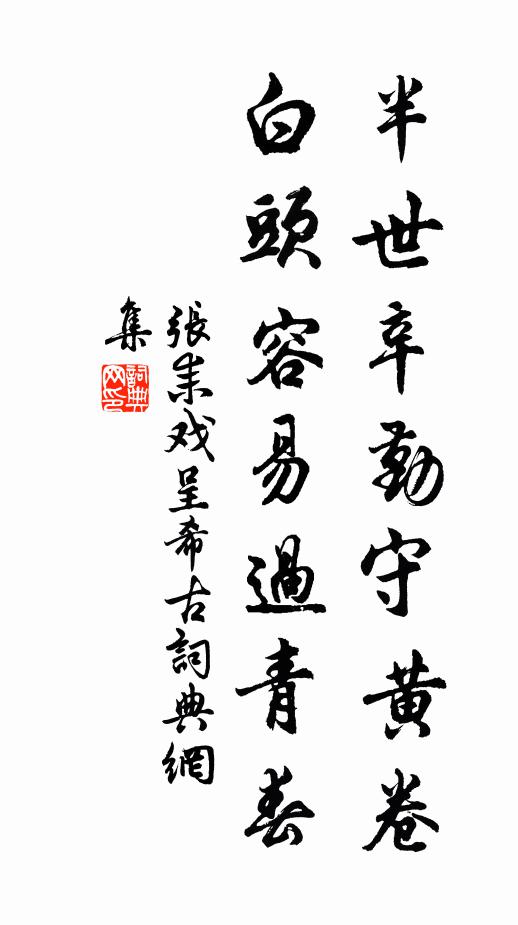 半世辛勤守黄卷
白頭容易過青春
張耒戏呈希古詞典網
集
詞典网印